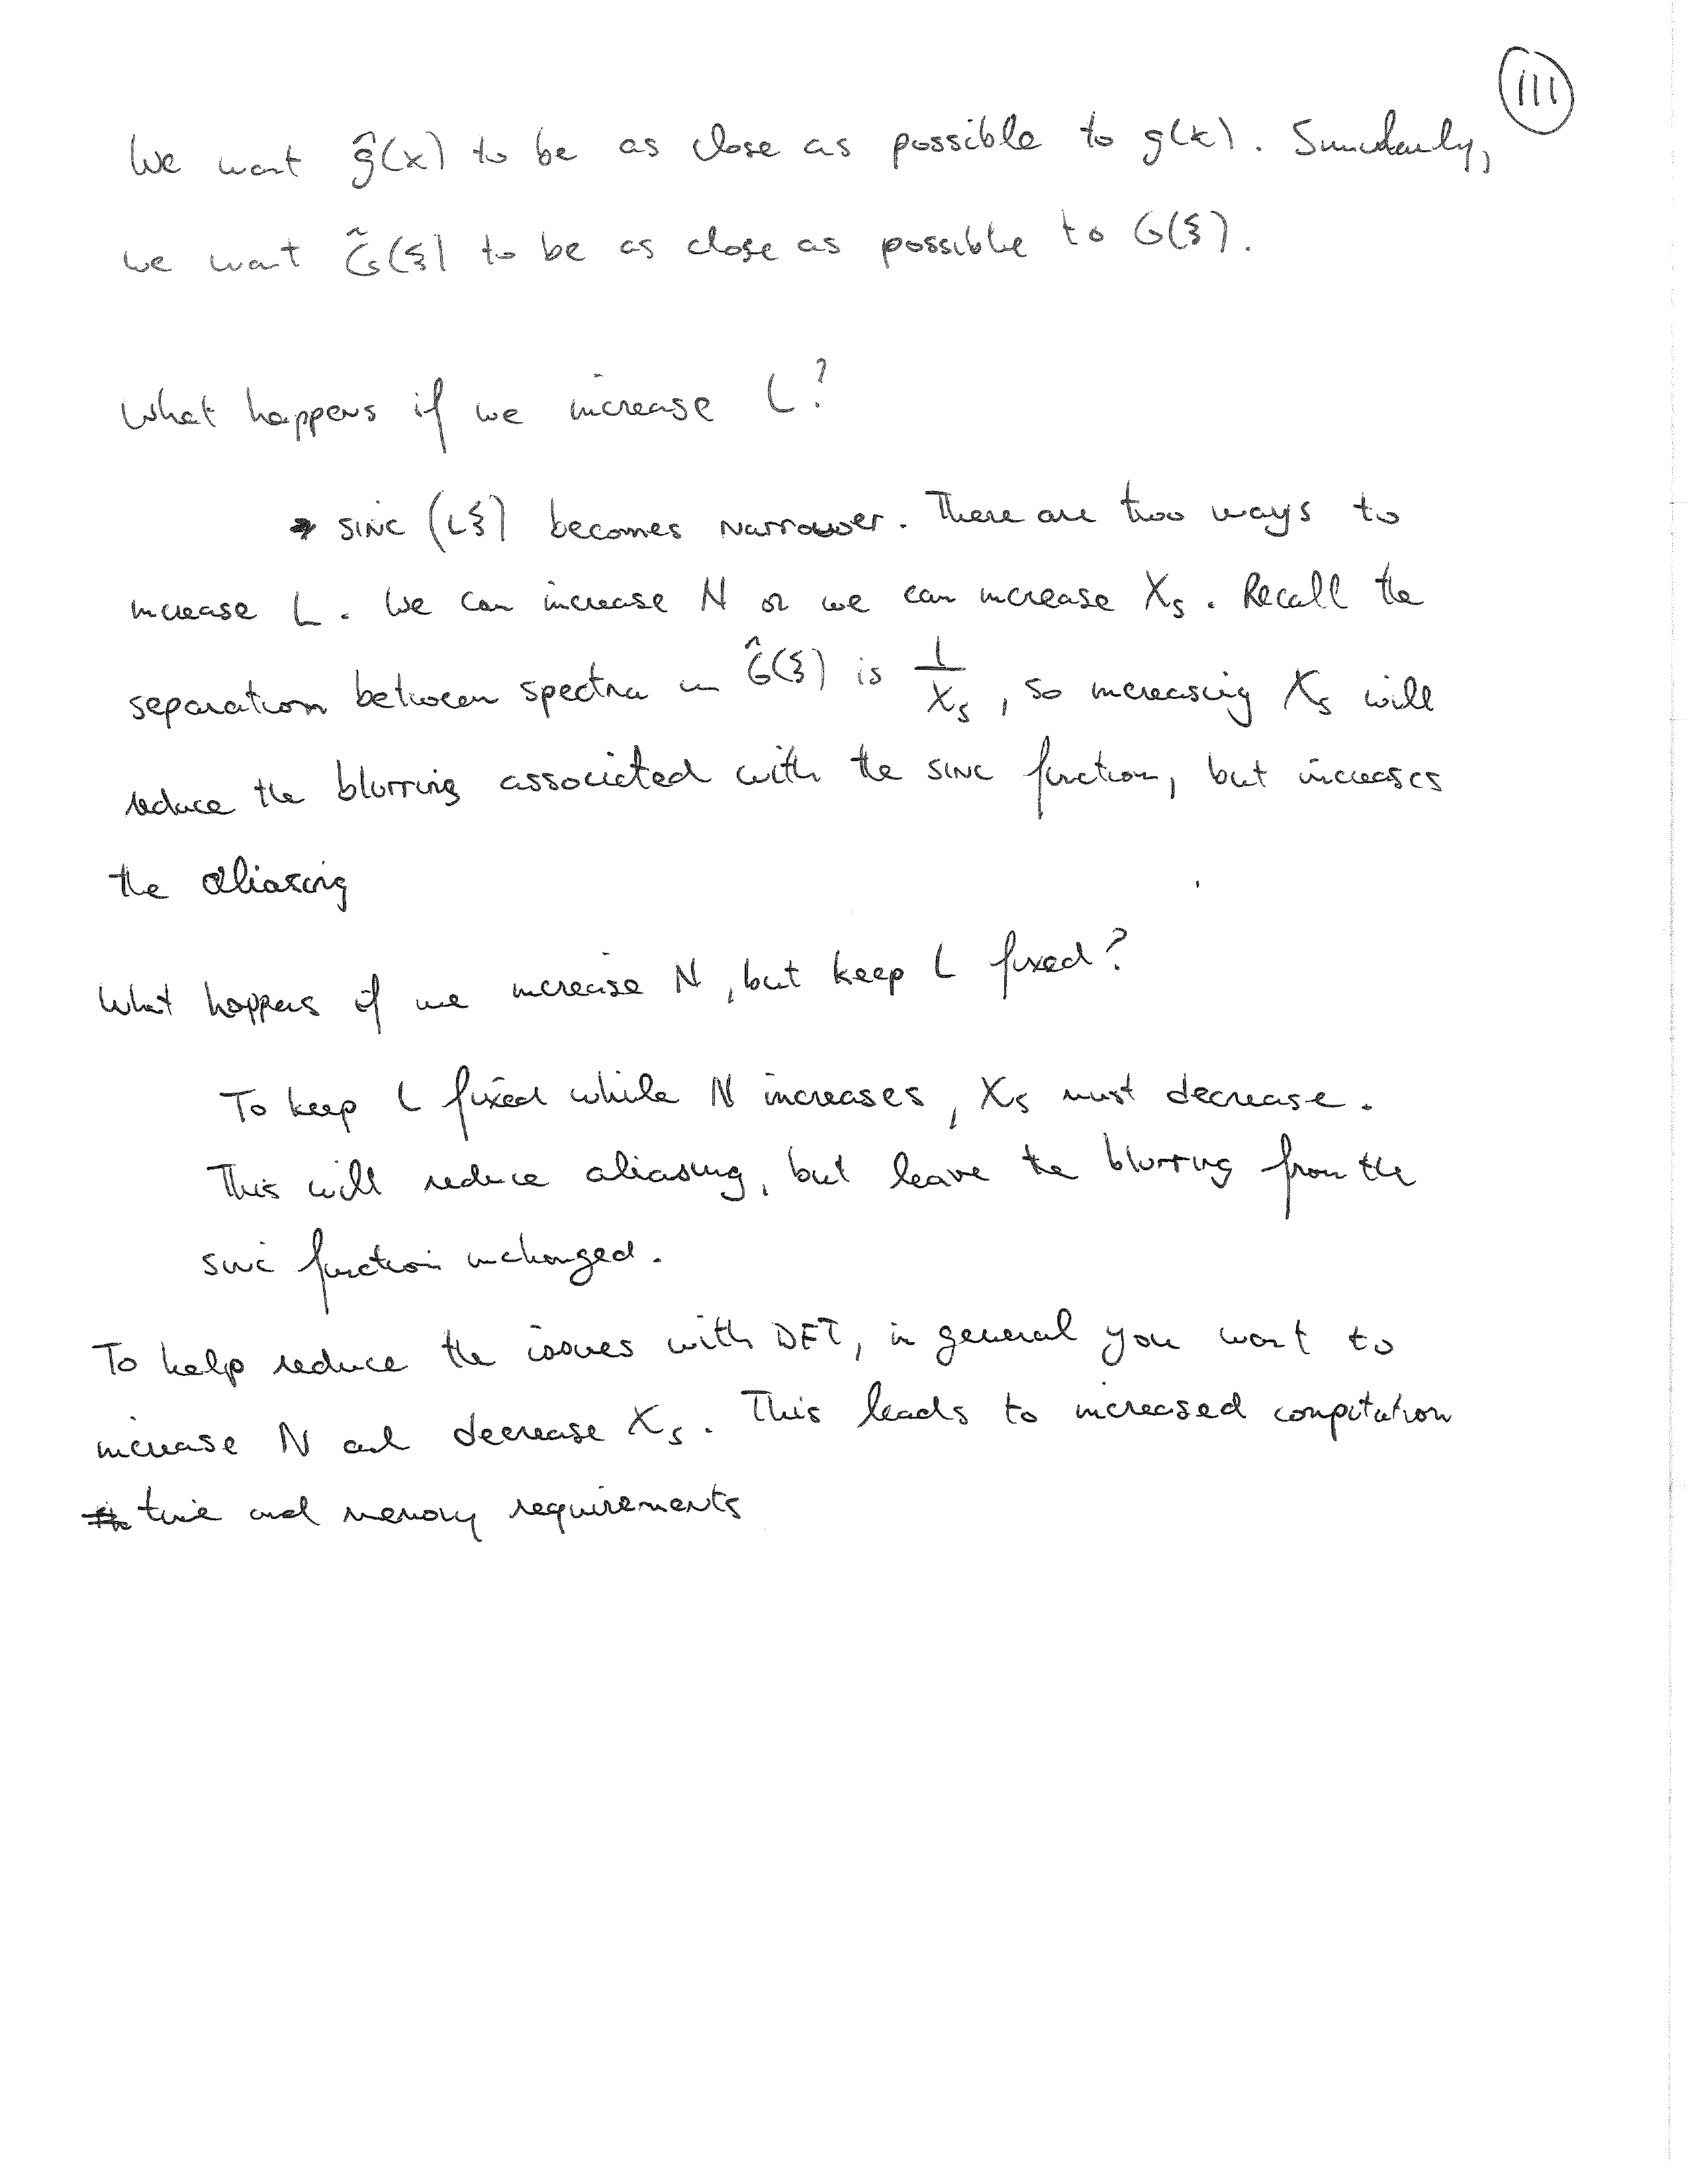 111
We want ĝ(x) to be as close as possible to g(x). Similarly,
we want Ĝ(ξ) to be as close as possible to G(ξ).
What happens if we increase L?
sinc (Lξ) becomes narrower. There are two ways to
increase L. We can increase N or we can increase Xs. Recall the
separation between spectra in Ĝ(ξ) is 1/Xs, so increasing Xs will
reduce the blurring associated with the sinc function, but increases
the aliasing
What happens if we increase N, but keep L fixed?
To keep L fixed while N increases, Xs must decrease.
This will reduce aliasing, but leave the blurring from the
sinc function unchanged.
To help reduce the issues with DFT, in general you want to
increase N and decrease Xs. This leads to increased computation
time and memory requirements